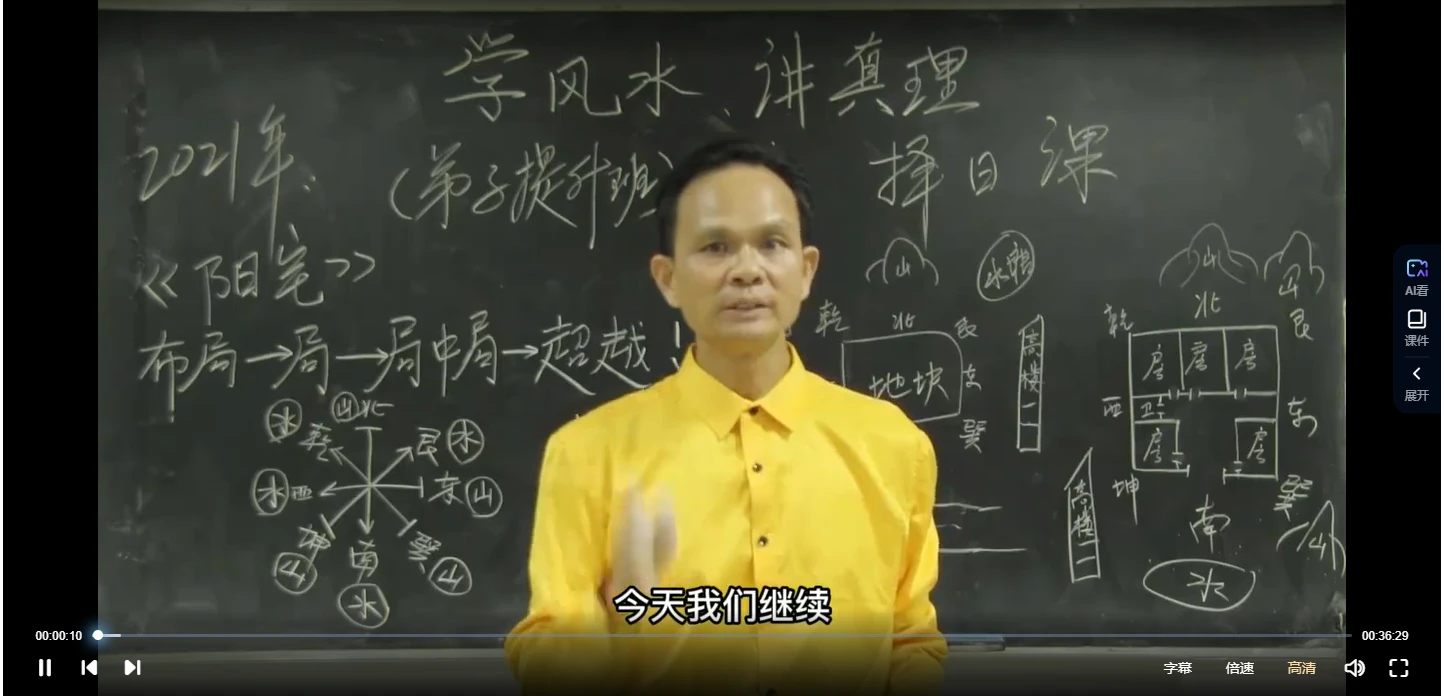 学风水、讲真理
2021年、（弟子提升班） 择日课
《阳宅》
布局→局→局中局→超越！
水 山 北
乾 艮 水
水 西 东 山
坤 南 巽
山 水 山
山
乾 北 艮
地块 东
巽
高楼一
高楼二
山 山
北
乾 艮
房 房 房
西 卫 东
房 房
坤 南 巽
水 山
今天我们继续
AI看
课件
展开
00:00:10 00:36:29
字幕 倍速 高清